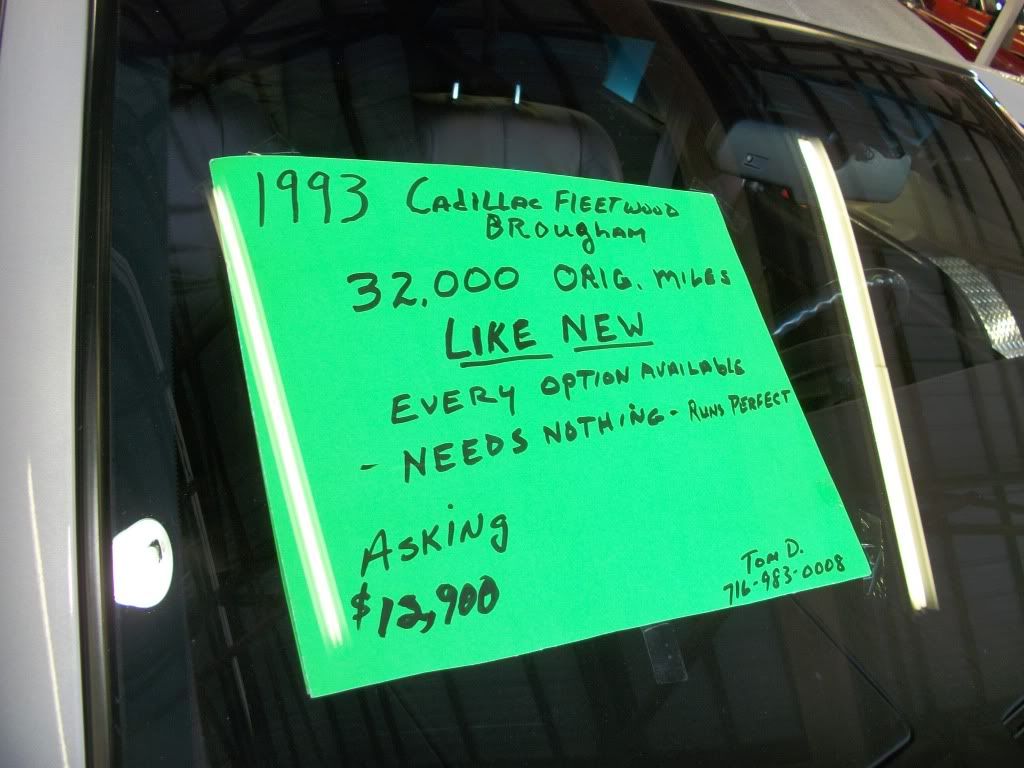 1993 Cadillac Fleetwood
Brougham
32,000 ORIG. MILES
LIKE NEW
EVERY OPTION AVAILABLE
- NEEDS NOTHING - RUNS PERFECT
ASKING
$12,900
Tom D.
716-983-0008